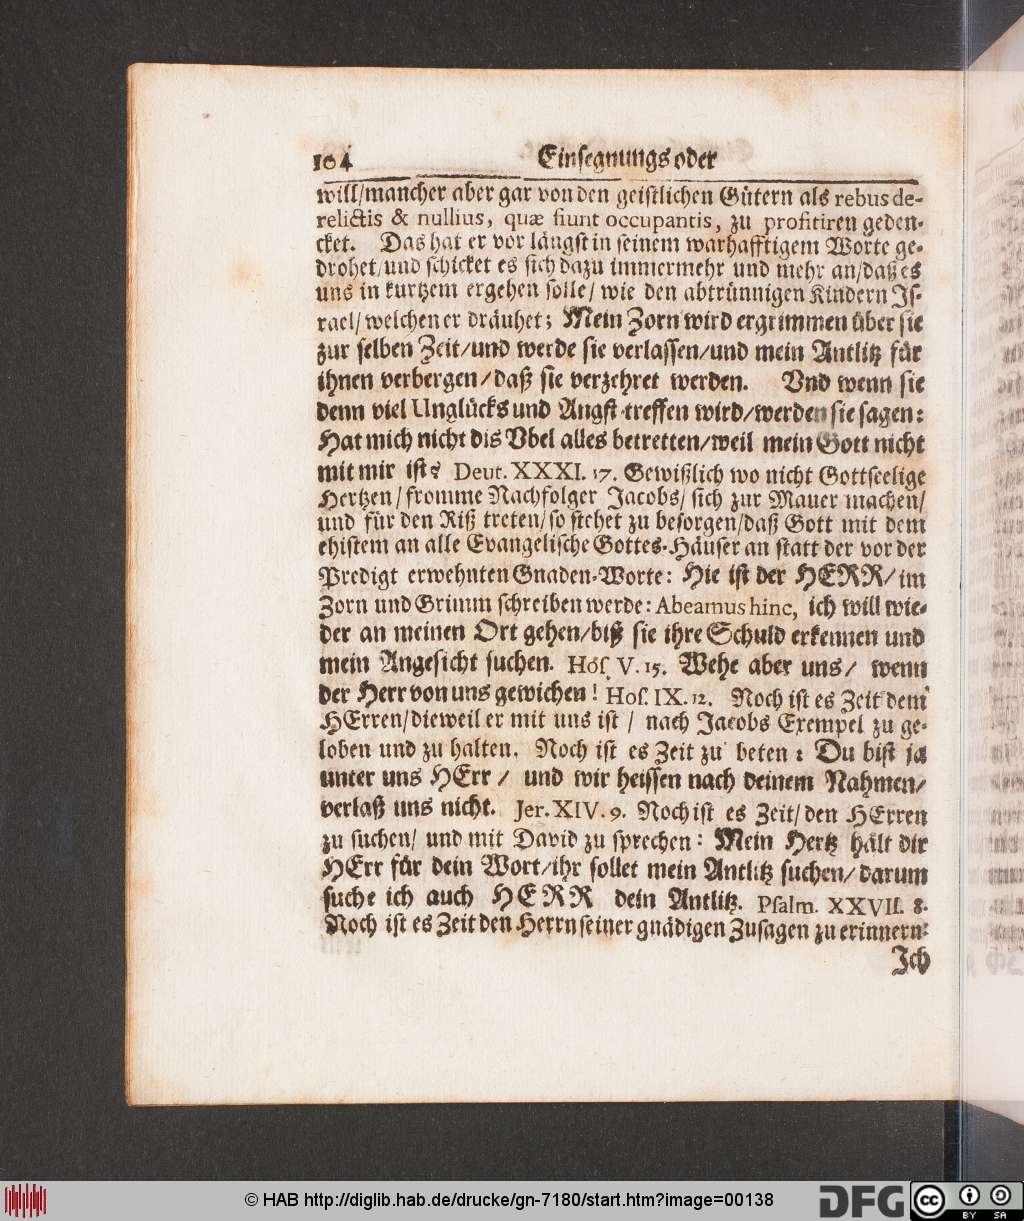 104 Einsegnungs oder
will/mancher aber gar von den geistlichen Gütern als rebus de-
relictis & nullius, quæ fiunt occupantis, zu profitiren geden-
cket. Das hat er vor längst in seinem warhafftigem Worte ge-
drohet/und schicket es sich dazu immermehr und mehr an/daß es
uns in kurtzem ergehen solle/ wie den abtrünnigen Kindern Is-
rael/ welchen er dräuhet; Mein Zorn wird ergrimmen über sie
zur selben Zeit/und werde sie verlassen/und mein Antlitz für
ihnen verbergen/daß sie verzehret werden. Vnd wenn sie
denn viel Unglücks und Angst treffen wird/werden sie sagen:
Hat mich nicht dis Vbel alles betretten/weil mein Gott nicht
mit mir ist? Deut. XXXI. 17. Gewißlich wo nicht Gottseelige
Hertzen/ fromme Nachfolger Jacobs/ sich zur Mauer machen/
und für den Riß treten/so stehet zu besorgen/daß Gott mit dem
ehistem an alle Evangelische Gottes-Häuser an statt der vor der
Predigt erwehnten Gnaden-Worte: Hie ist der HERR/ im
Zorn und Grimm schreiben werde: Abeamus hinc, ich will wie-
der an meinen Ort gehen/biß sie ihre Schuld erkennen und
mein Angesicht suchen. Hos. V. 15. Wehe aber uns/ wenn
der Herr von uns gewichen! Hos. IX. 12. Noch ist es Zeit dem
HErren/dieweil er mit uns ist/ nach Jacobs Exempel zu ge-
loben und zu halten. Noch ist es Zeit zu beten: Du bist ja
unter uns HErr/ und wir heissen nach deinem Nahmen/
verlaß uns nicht. Jer. XIV. 9. Noch ist es Zeit/ den HErren
zu suchen/ und mit David zu sprechen: Mein Hertz hält dir
HErr für dein Wort/ihr sollet mein Antlitz suchen/ darum
suche ich auch HERR dein Antlitz. Psalm. XXVII. 8.
Noch ist es Zeit den Herrn seiner gnädigen Zusagen zu erinnern:
Ich
© HAB http://diglib.hab.de/drucke/gn-7180/start.htm?image=00138
DFG
cc BY SA